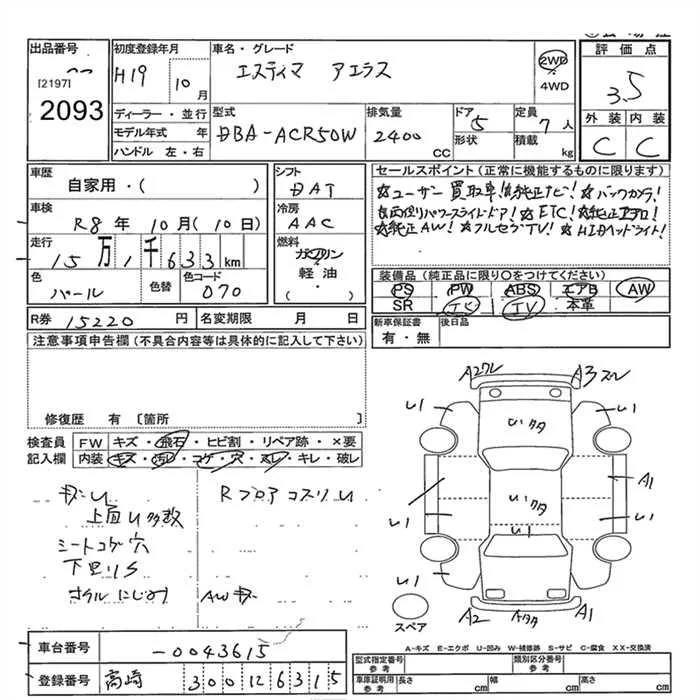 出品番号 初度登録年月 車名・グレード 評価点
[2197]
2093
H19 10月 エスティマ アエラス 2WD 4WD 3.5
ディーラー・並行
モデル年式 年
ハンドル 左・右
型式 DBA-ACR50W
排気量 2400 CC
ドア 5
形状
定員 7人
積載 kg
外装 内装
C C
車歴
自家用・( )
車検 R8年 10月(10日)
走行 15万1千633km
色 パール 色替 色コード 070
シフト DAT
冷房 AAC
燃料 ガソリン
軽油
・( )
セールスポイント(正常に機能するものに限ります)
☆ユーザー買取車!☆純正ナビ!☆バックカメラ!
☆両側パワースライドドア!☆ETC!☆純正エアロ!
☆純正AW!☆フルセグTV!☆HIDヘッドライト!
装備品(純正品に限り○をつけてください)
PS PW ABS エアB AW
SR TV 本革
新車保証書 後日品
有・無
R券 15220円 名変期限 月 日
注意事項申告欄(不具合内容等は具体的に記入して下さい)
修復歴 有〔箇所 〕
検査員 FW キズ・飛石・ヒビ割・リペア跡・×要
記入欄 内装 キズ・汚レ・コゲ・穴・スレ・キレ・破レ
キズU RフロアコスリU
上面U多数
シートコゲ穴
下回りS
AWキズ
A2ワレ A3スレ
U1 U1
Uリタ
A1
U1 Uリタ U1
U1
U1
A2 A1
スペア
A-キズ E-エクボ U-凹み W-補修跡 S-サビ C-腐食 XX-交換済
車台番号 -0043615
登録番号 高崎 300 126 315
型式指定番号 参考 類別区分番号 参考
車庫証明用 参考 長さ cm 幅 cm 高さ cm